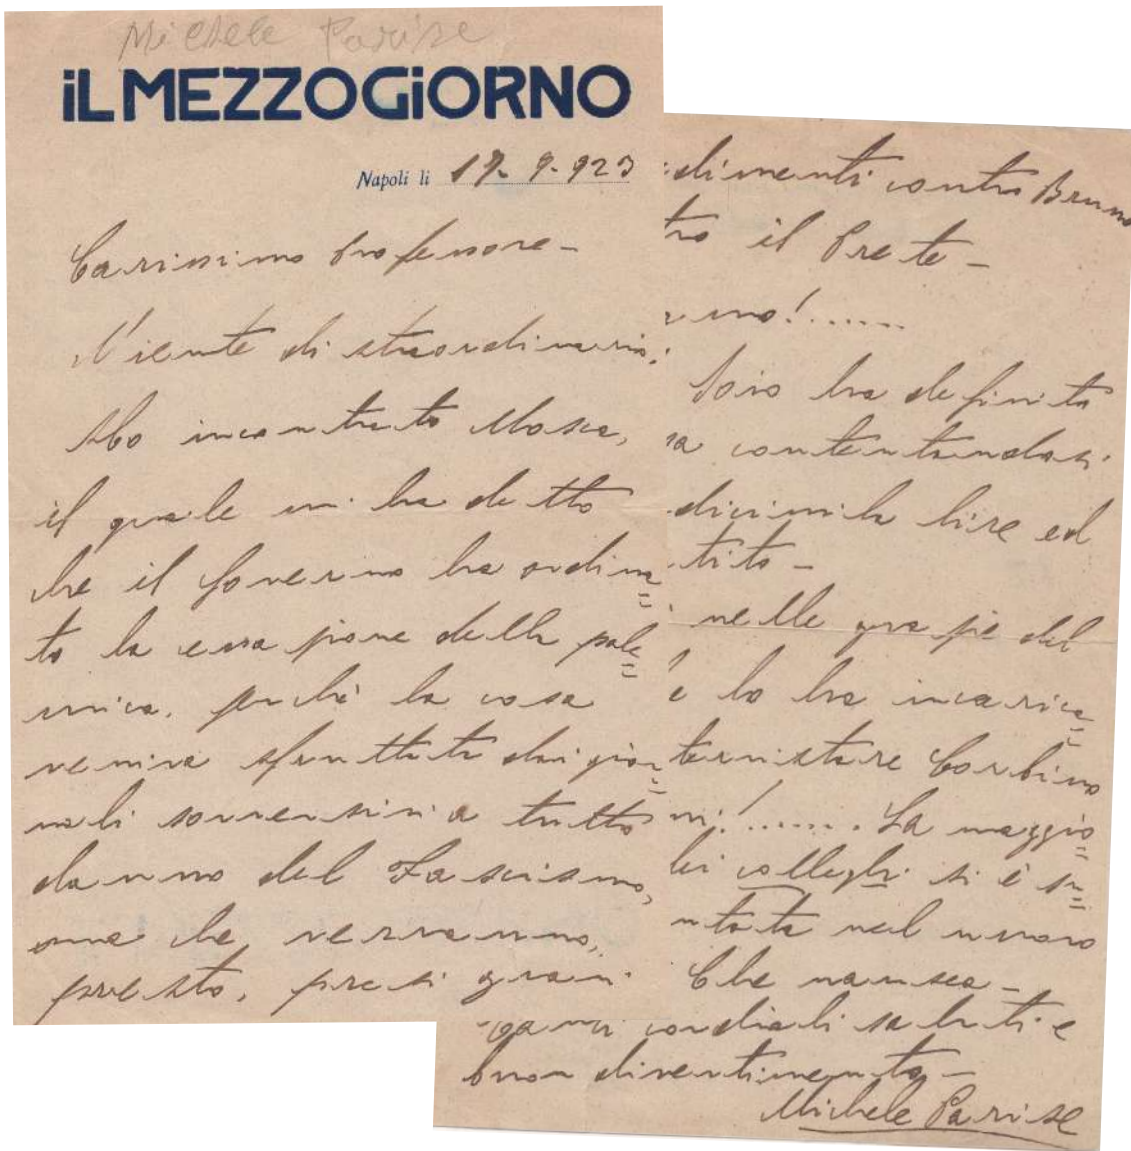 Michele Parise
iL MEZZOGiORNO
Napoli li 17-9-923
Carissimo Professore-
Niente di straordinario.
Ho incontrato Mosca,
il quale mi ha detto
che il Governo ha ordina=
to la cessazione della pole=
mica, perchè la cosa
veniva sfruttata dai gior=
nali sovversivi a tutto
danno del Fascismo,
ma che verranno,
presto, presi gran
dimenti contro Bruno
tro il Prete-
!.......
ha definito
contentandosi
dicimila lire ed
tito-
nelle grazie del
lo ha incarica=
Corbino
!....... La maggio=
dei colleghi si è
ntata nel nuovo
Che nausea-
cordiali saluti e
buon divertimento-
Michele Parise